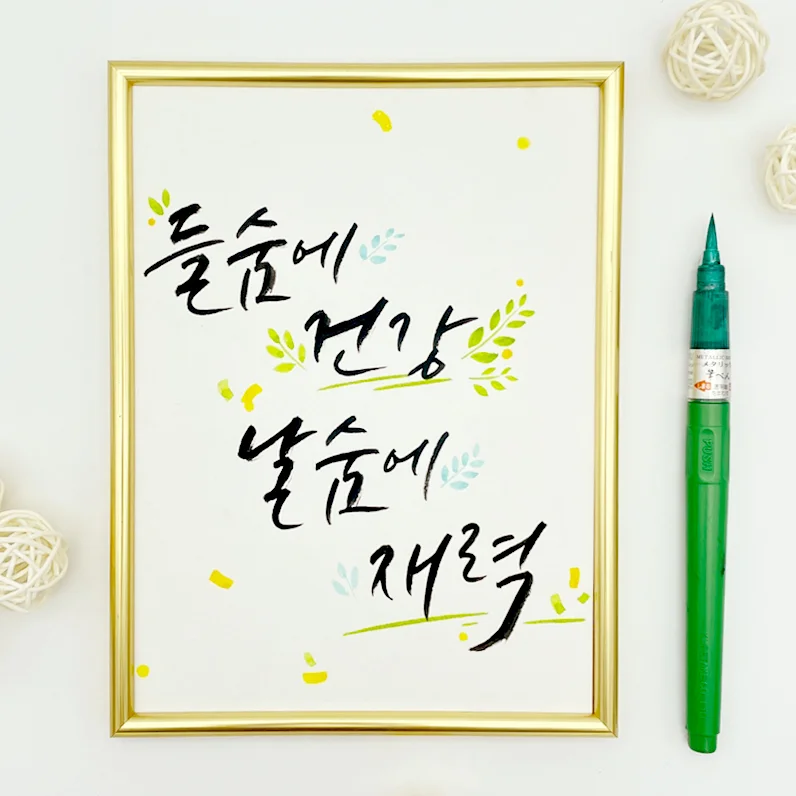 들숨에
건강
날숨에
재력
METALLIC
メタリック
筆ぺん
PUSH